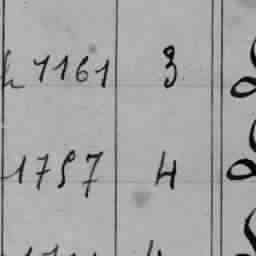 1161 3
1757 4